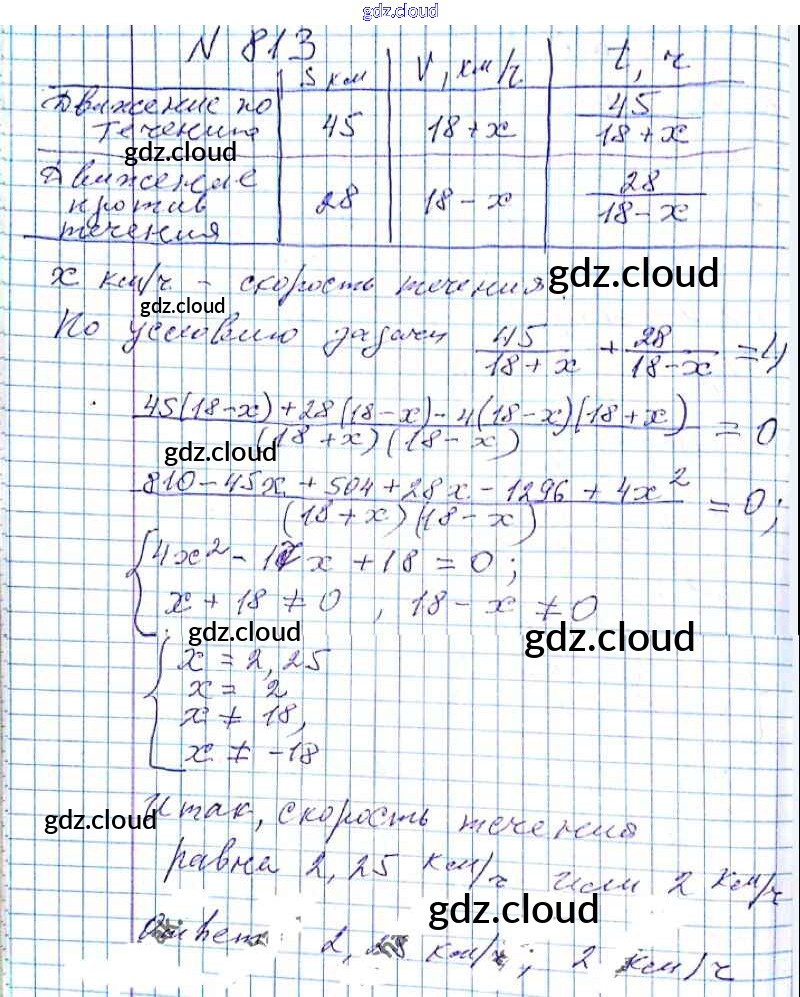 gdz.cloud
N 813
S км V, км/ч t, ч
Движение по течению 45 18+x 45/(18+x)
gdz.cloud
Движение против течения 28 18-x 28/(18-x)
x км/ч - скорость течения.
gdz.cloud
gdz.cloud
По условию задачи 45/(18+x) + 28/(18-x) = 4
(45(18-x)+28(18-x)-4(18-x)(18+x))/((18+x)(18-x)) = 0
gdz.cloud
(810-45x+504+28x-1296+4x²)/((18+x)(18-x)) = 0;
{4x²-17x+18=0;
x+18≠0, 18-x≠0
gdz.cloud
gdz.cloud
{x=2,25
x=2
x≠18,
x≠-18
Итак, скорость течения
gdz.cloud
равна 2,25 км/ч или 2 км/ч
gdz.cloud
Ответ: км/ч; 2 км/ч